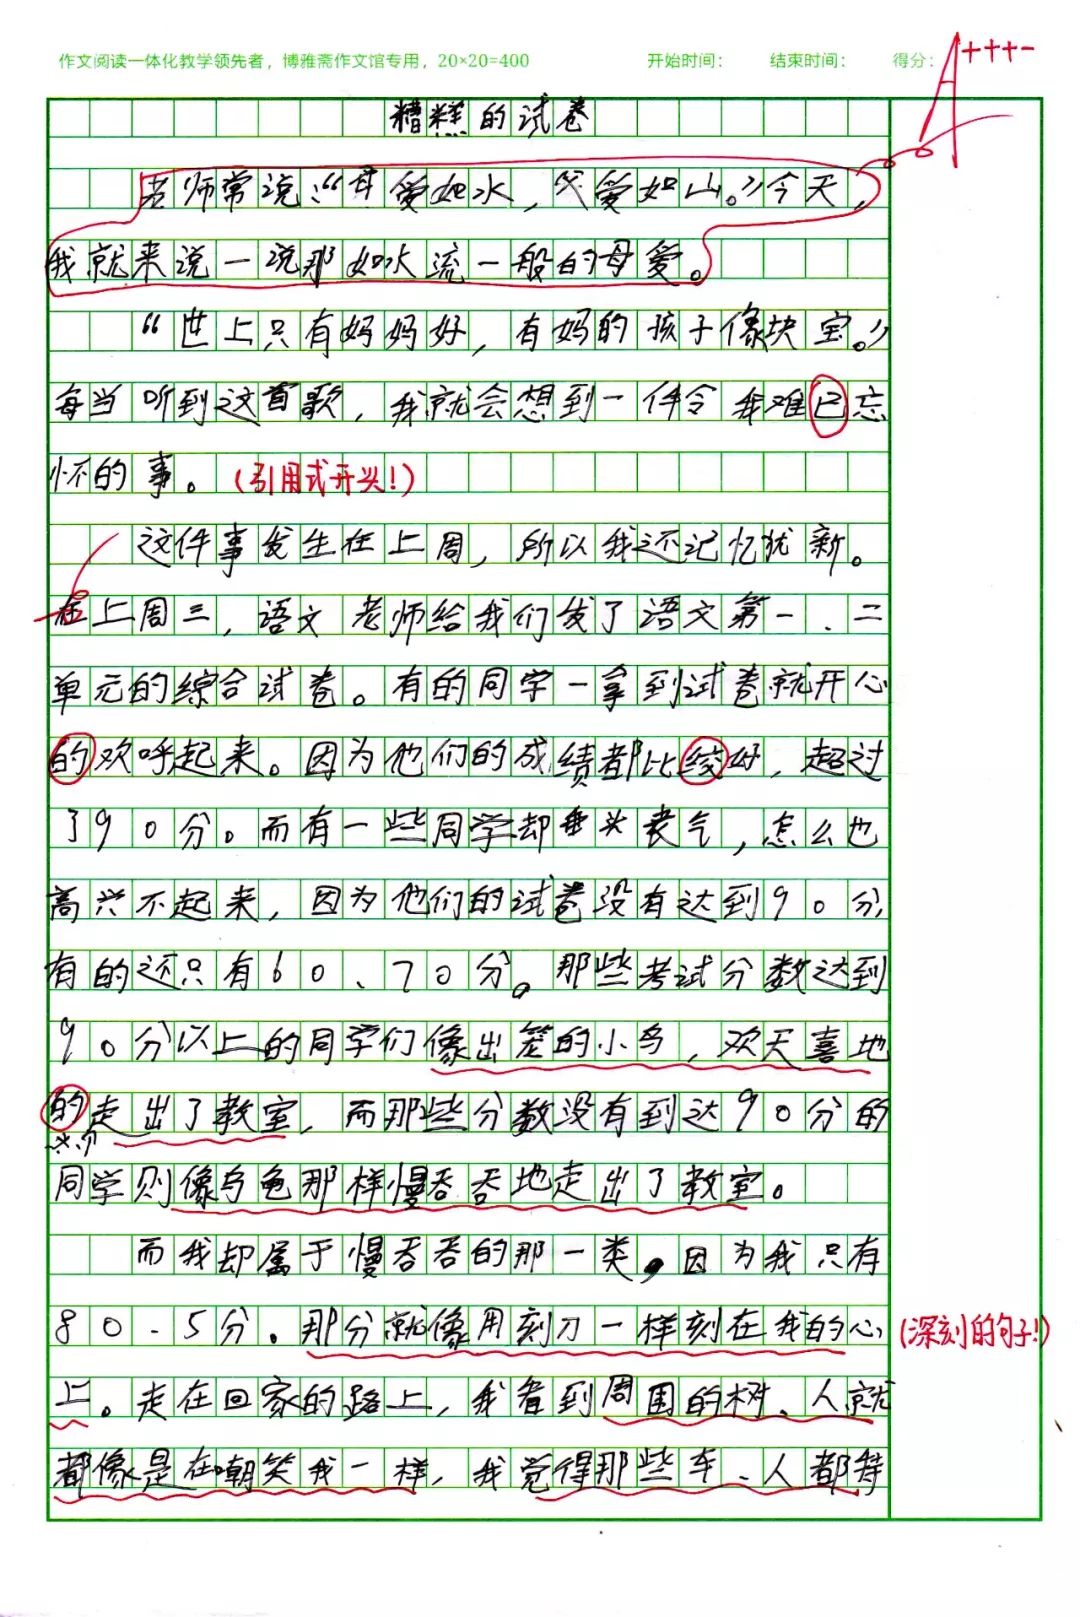 作文阅读一体化教学领先者，博雅斋作文馆专用，20×20=400 开始时间： 结束时间： 得分：
A+++-
糟糕的试卷
老师常说：“母爱如水，父爱如山。”今天，
我就来说一说那如水流一般的母爱。
“世上只有妈妈好，有妈的孩子像块宝。”
每当听到这首歌，我就会想到一件令我难已忘
怀的事。（引用式开头！）
这件事发生在上周，所以我还记忆犹新。
在上周三，语文老师给我们发了语文第一、二
单元的综合试卷。有的同学一拿到试卷就开心
的欢呼起来。因为他们的成绩都比较好，超过
了90分。而有一些同学却垂头丧气，怎么也
高兴不起来，因为他们的试卷没有达到90分
有的还只有60、70分。那些考试分数达到
90分以上的同学们像出笼的小鸟，欢天喜地
的走出了教室，而那些分数没有到达90分的
同学则像乌龟那样慢吞吞地走出了教室。
而我却属于慢吞吞的那一类。因为我只有
80.5分。那分就像用刻刀一样刻在我的心
（深刻的句子！）
上。走在回家的路上，我看到周围的树、人就
都像是在嘲笑我一样，我觉得那些车、人都特